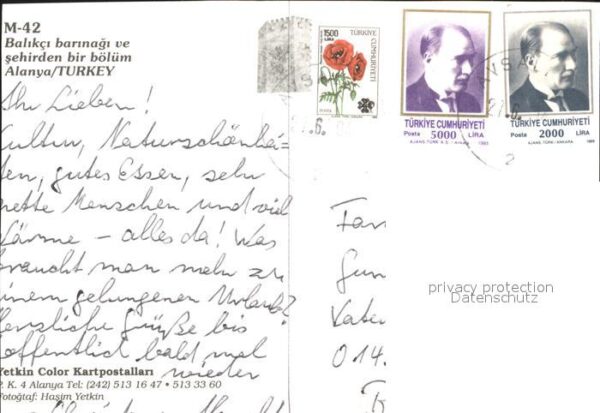 M-42
Balıkçı barınağı ve
şehirden bir bölüm
Alanya/TURKEY
Ihr Lieben!
Kultur, Naturschönhei-
ten, gutes Essen, sehr
nette Menschen und viel
Wärme – alles da! Was
braucht man mehr zu
einem gelungenen Urlaub?
Herzliche Grüße bis
hoffentlich bald mal
wieder
Yetkin Color Kartpostalları
P. K. 4 Alanya Tel: (242) 513 16 47 • 513 33 60
Fotoğtaf: Haşim Yetkin
1500
LİRA
TÜRKİYE
CUMHURİYETİ
POSTA
TÜRKİYE CUMHURİYETİ
Posta 5000 LİRA
AJANS-TÜRK A.Ş.-Ankara 1993
TÜRKİYE CUMHURİYETİ
Posta 2000 LİRA
AJANS-TÜRK/ANKARA
Fam
Vater
014.
privacy protection
Datenschutz